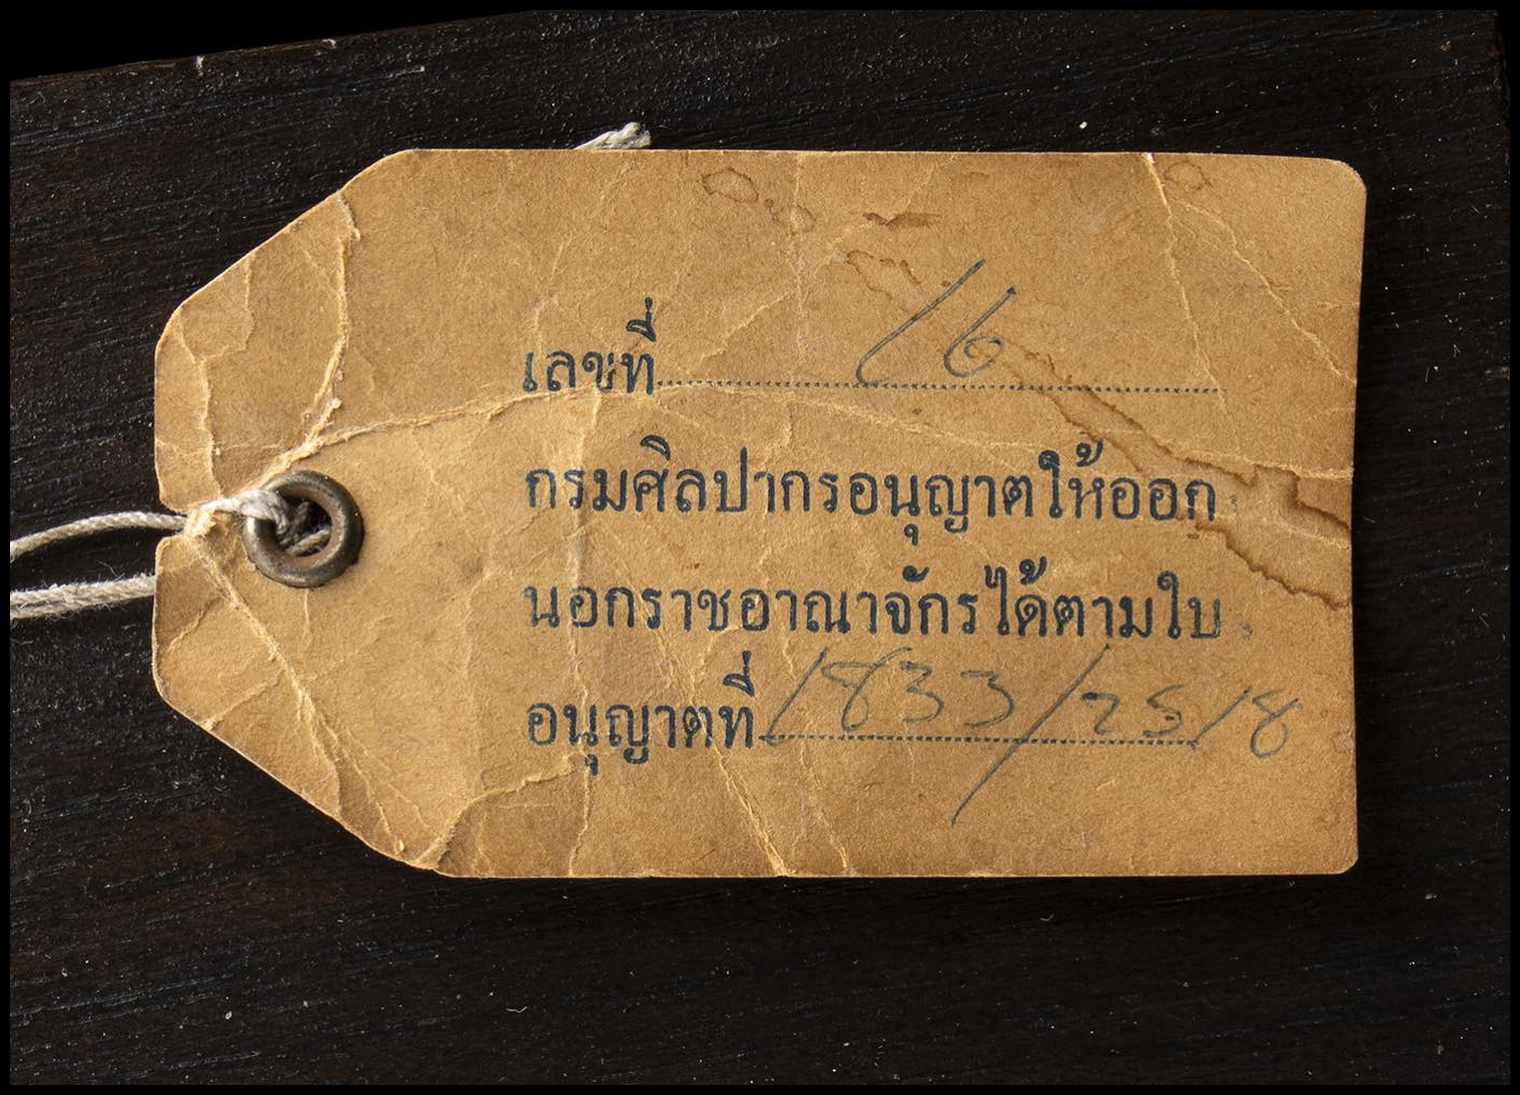 เลขที่ 16
กรมศิลปากรอนุญาตให้ออก
นอกราชอาณาจักรได้ตามใบ
อนุญาตที่ 1833/2518